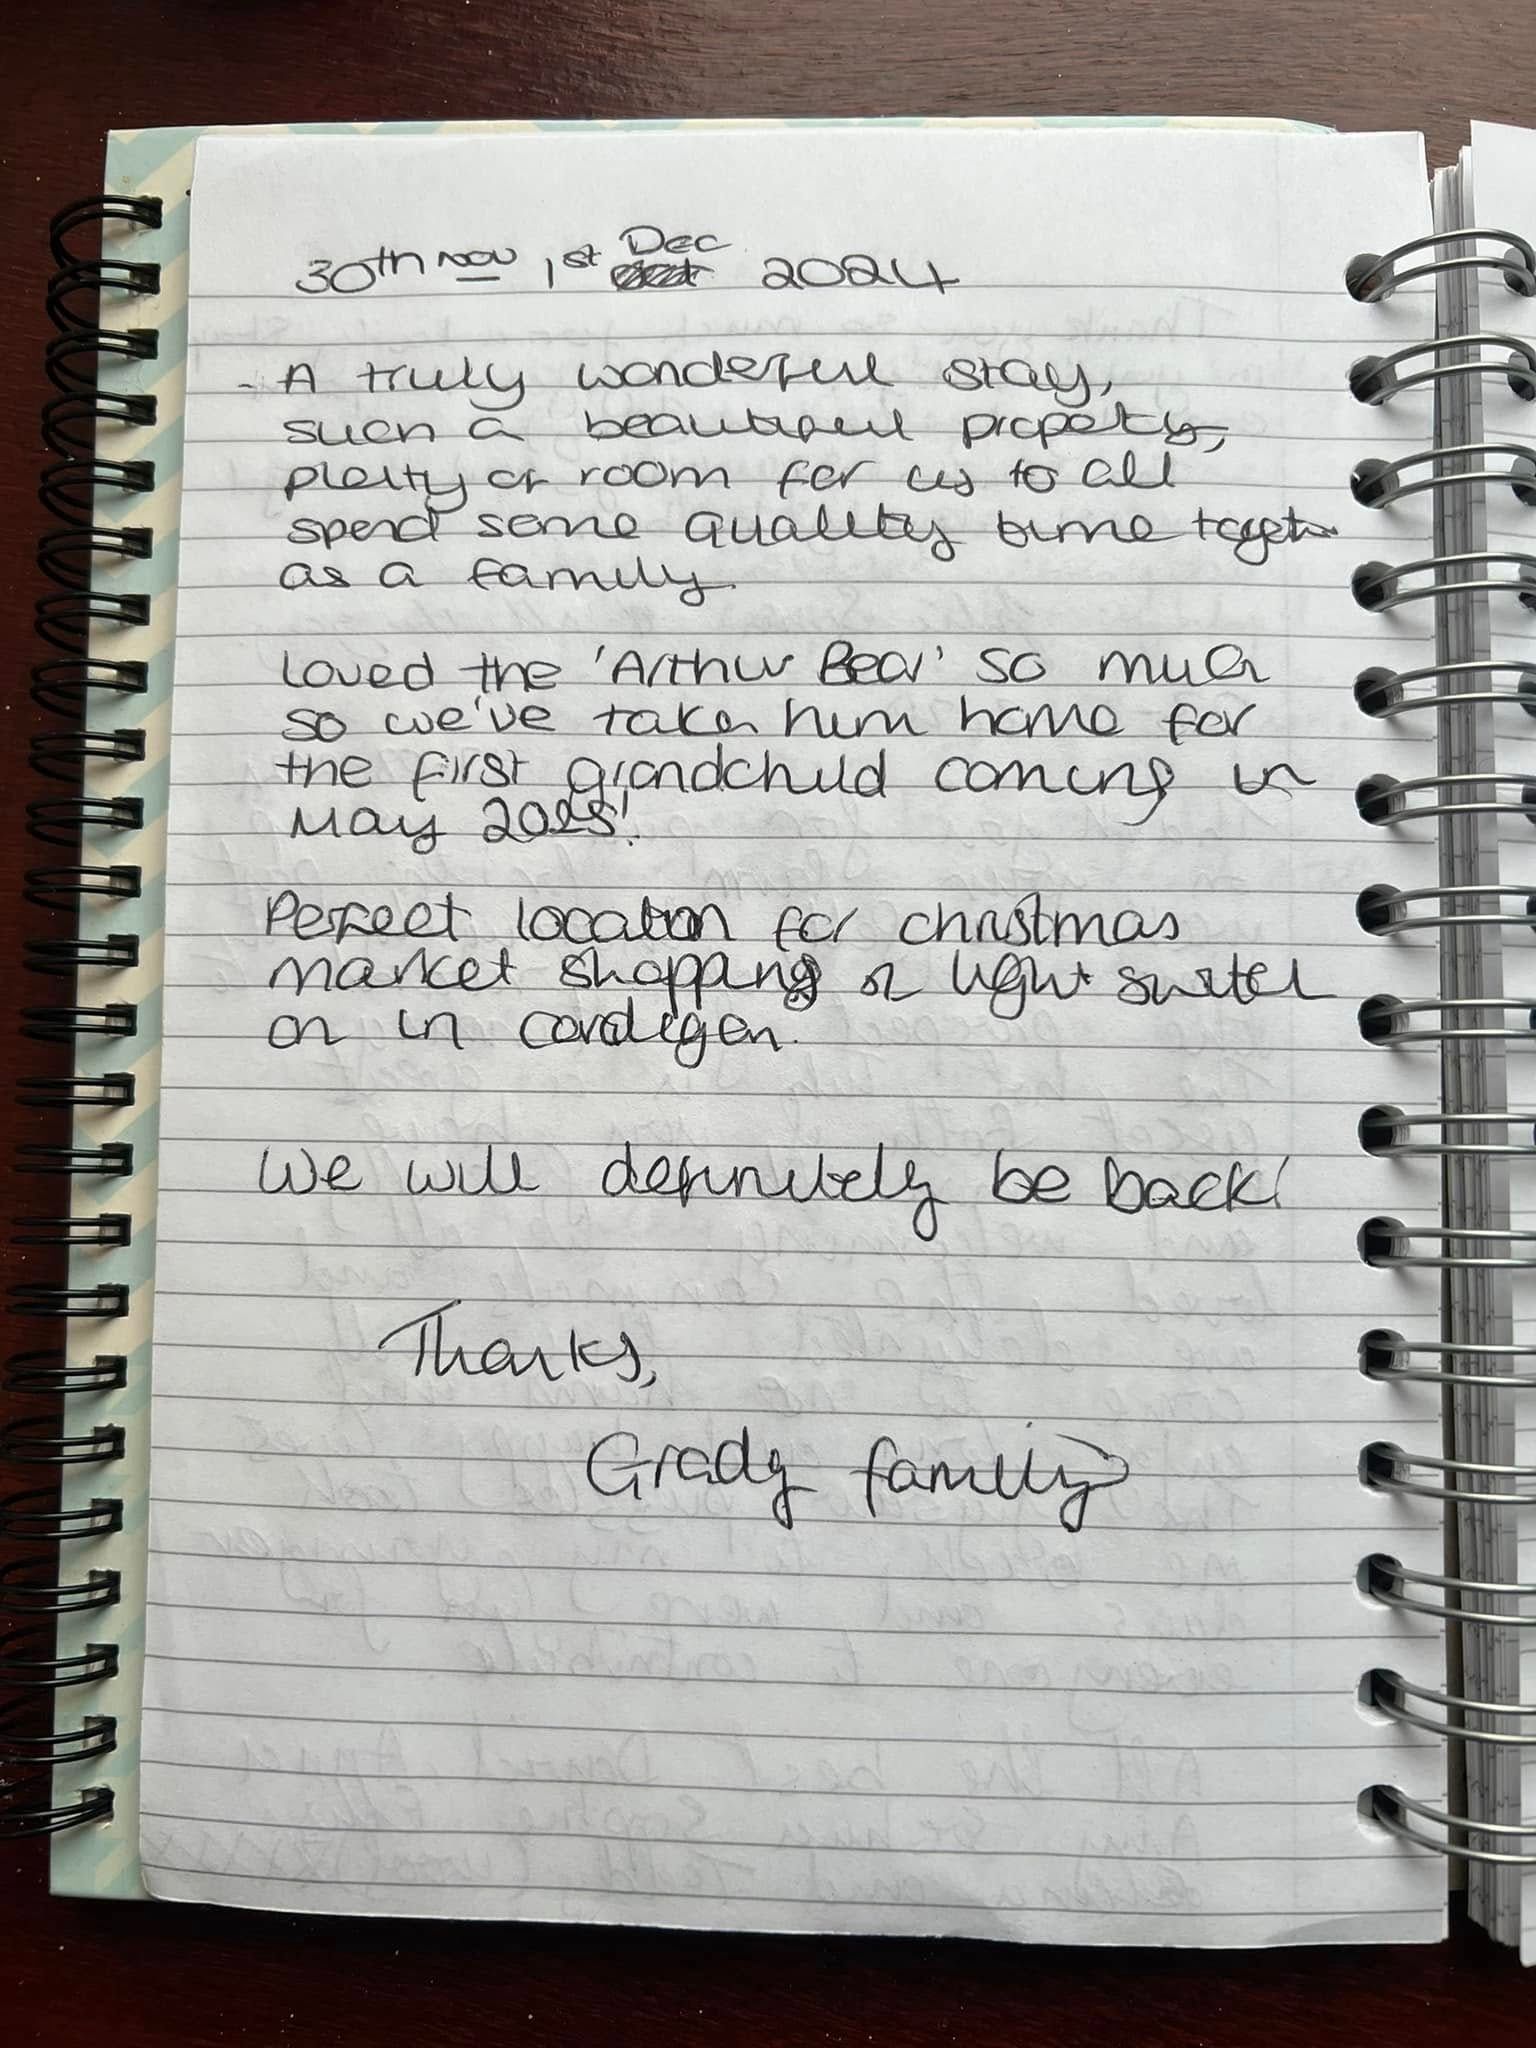 30th Nov 1st Dec 2024
- A truly wonderful stay,
such a beautiful property,
plenty of room for us to all
spend some quality time together
as a family.
Loved the 'Arthur Bear' so much
so we've taken him home for
the first grandchild coming in
May 2025!
Perfect location for christmas
market shopping & light switch
on in Cardigan.
We will definitely be back!
Thanks,
Grady family